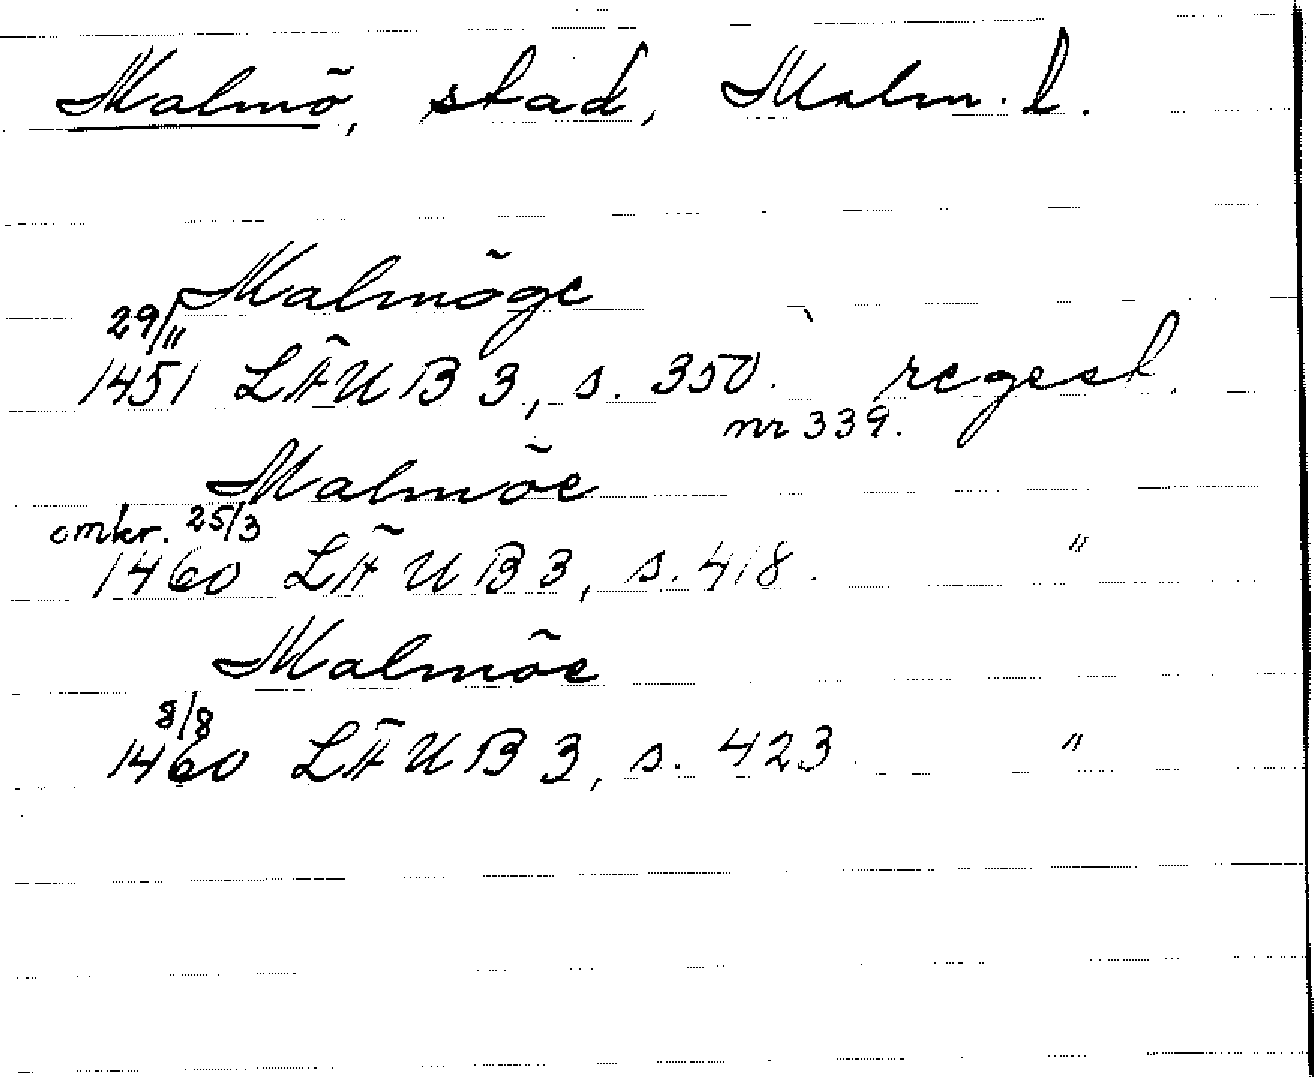 Malmö, stad, Malm. l.
Malmöge
29/11
1451 LÄUB 3, s. 350. regest.
nr 339.
Malmöe
omkr. 25/3
1460 LÄUB 3, s. 418. "
Malmöe
8/8
1460 LÄUB 3, s. 423 "